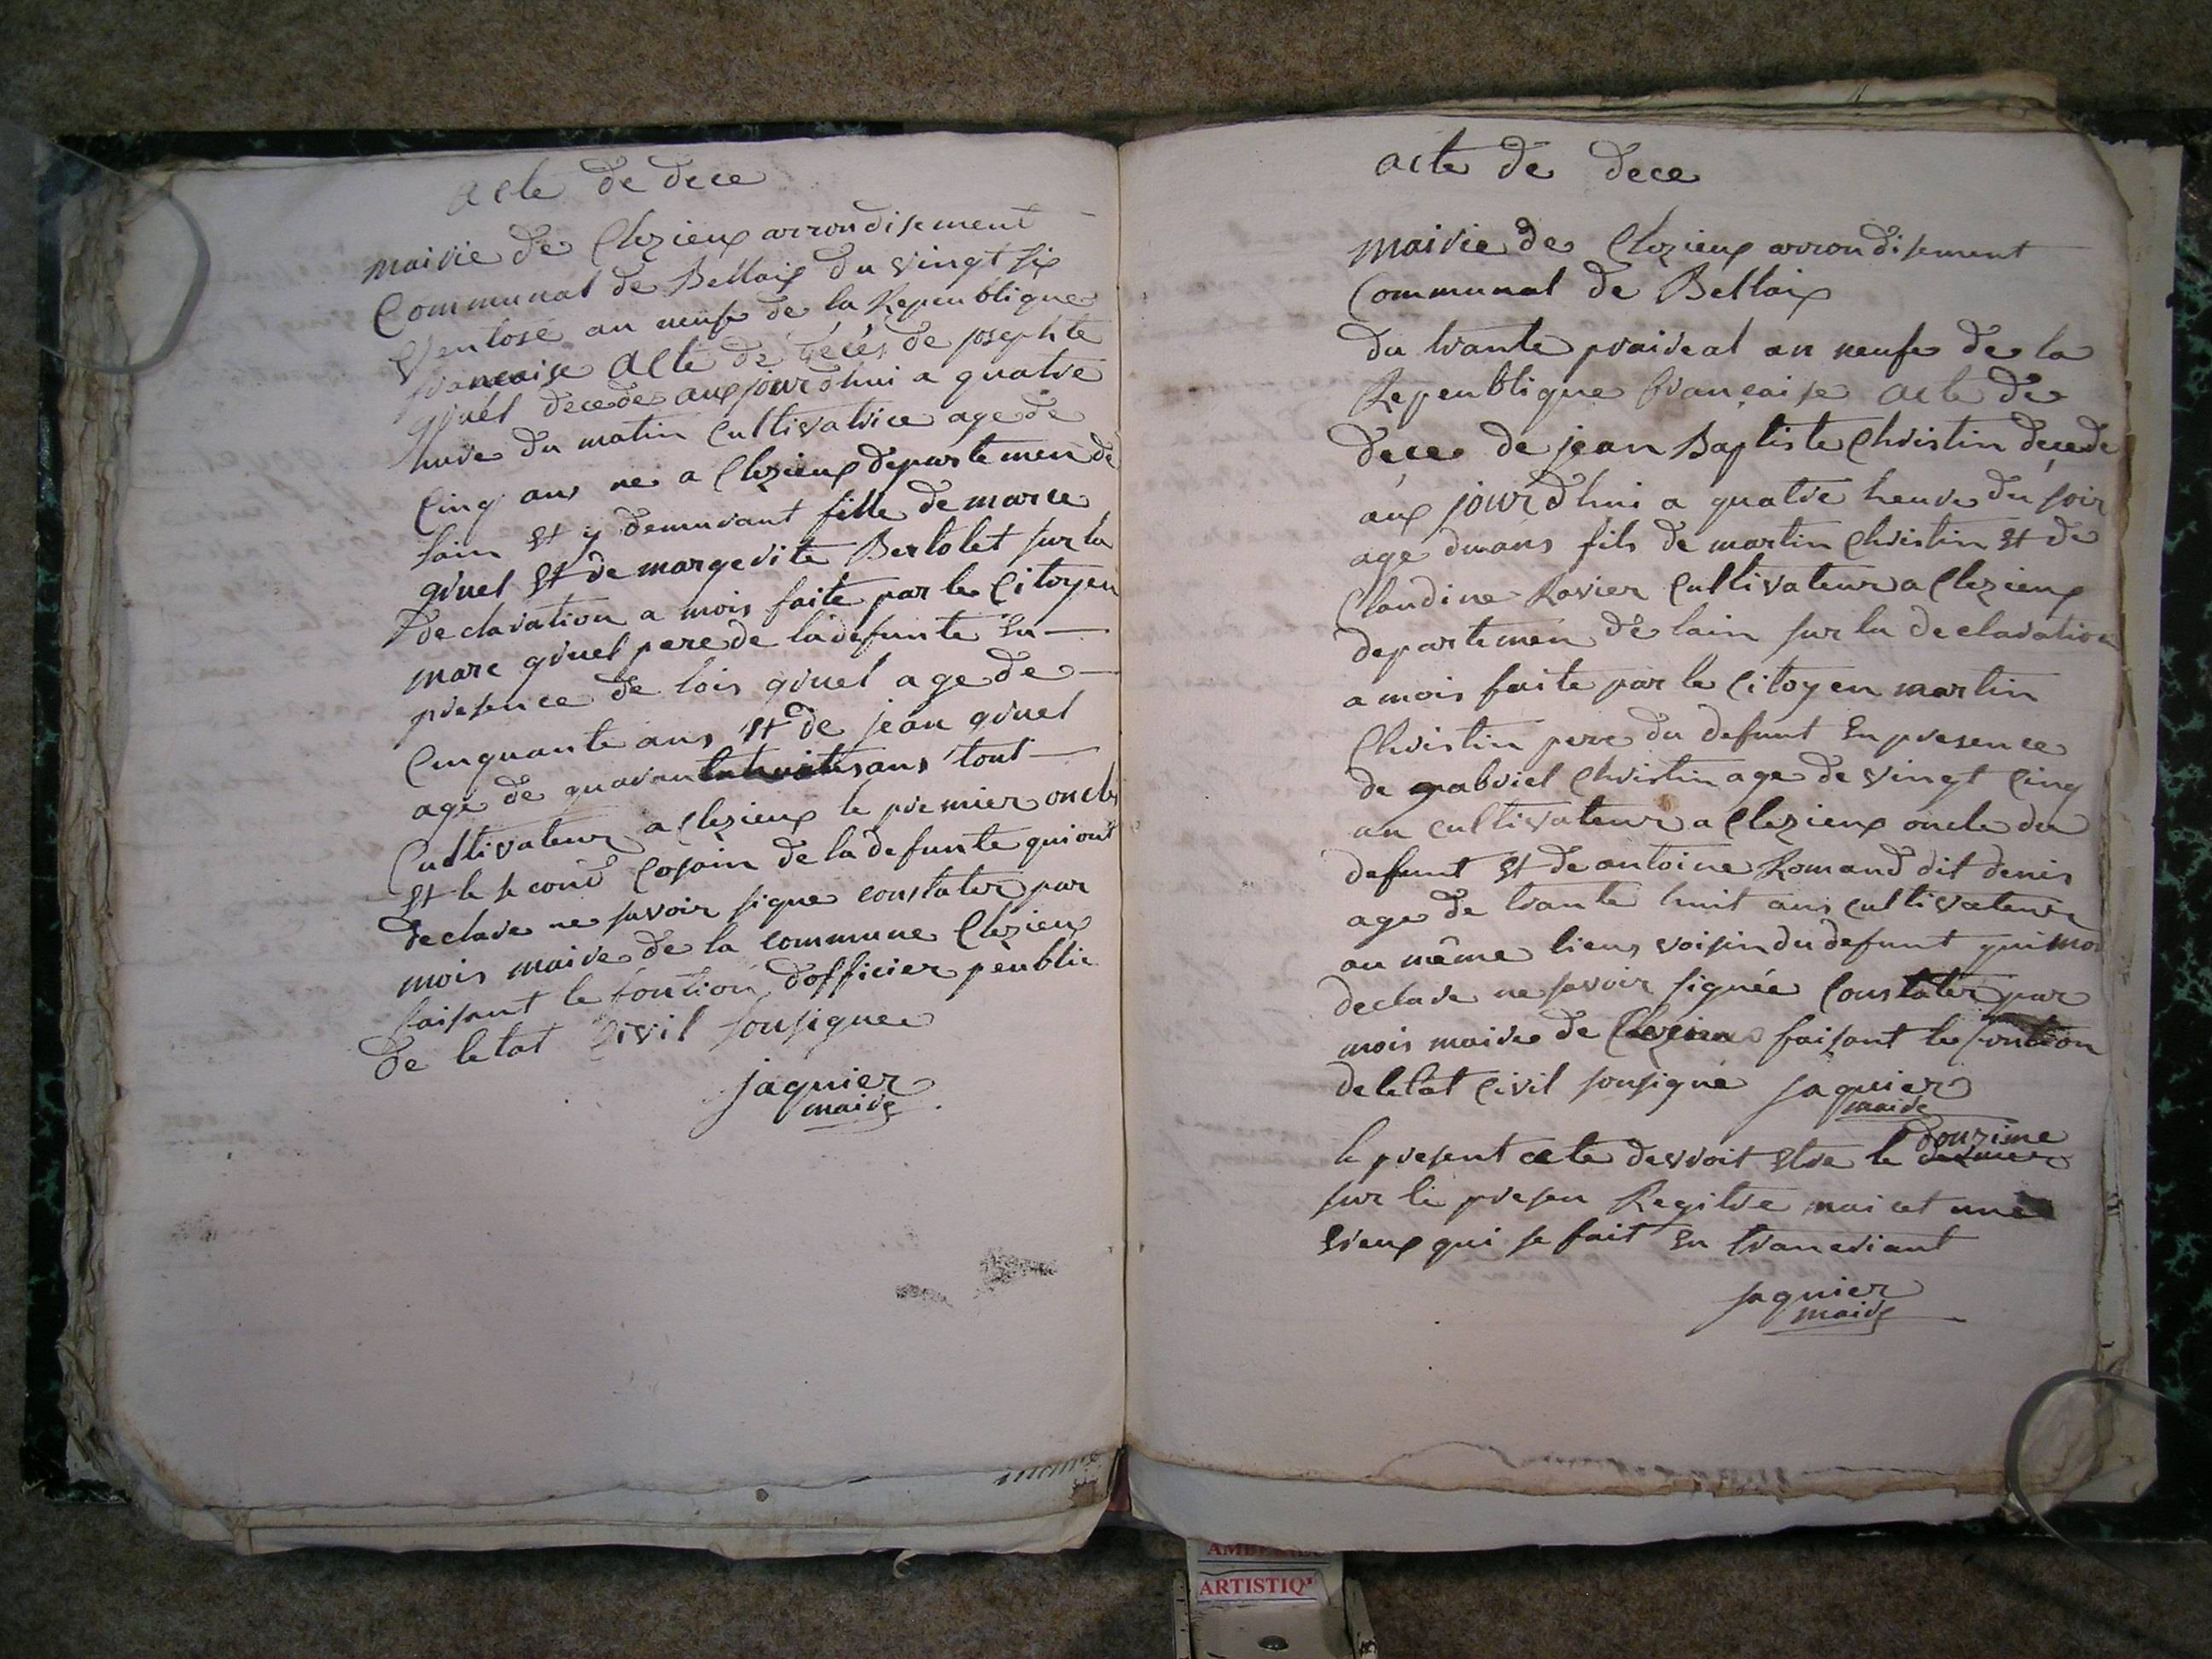 acte de dece
mairie de Clezieux arrondisement
Communal de Bellaix du vingt six
Ventose an neufe de la Repeublique
francaise Acte de décés de josephte
gruel decede aux jour dhui a quatre
hure du matin Cultivatrice age de
Cinq ans ne a Clezieux departemen de
lain et y demurant fille de marce
gruel et de margerite Bertolet sur la
declaration a mois faite par le Citoyen
marc gruel pere de la defunte En
presence de lois gruel age de
Cinquante ans et de jean gruel
age de quarante huites ans tout
Cultivateur a Clezieux le premier oncle
et le second Cosain de la defunte qui ont
declare ne savoir signe constater par
mois maire de la commune Clezieux
faisant le fontion dofficier peublic
de letat Civil sousignee
jaquier
maire
acte de dece
mairie de Clezieux arrondisement
Communal de Bellaix
du trante praireal an neufe de la
Repeublique française acte de
dece de jean Baptiste Christin decede
aux jour dhui a quatre heure du soir
age duans fils de martin Christin et de
Claudine Ravier Cultivateur a Clezieux
departemen de lain sur la declaration
a mois faite par le Citoyen martin
Christin pere du defunt En presence
de gabriel Christin age de vingt Cinq
an cultivateur a Clezieux oncle du
defunt et de antoine Romand dit denis
age de trante huit ans cultivateur
au même lieus voisin du defunt qui mon
declare ne savoir signée Constater par
mois maire de Clezieux faisant le fontion
de letat Civil sousigné jaquier
maire
le present acte devroit etre le douzime
sur le presen Regitre mai cet une
Erieux qui se fait En trancriant
jaquier
maire
maire
AMBERIEU
ARTISTIQ'